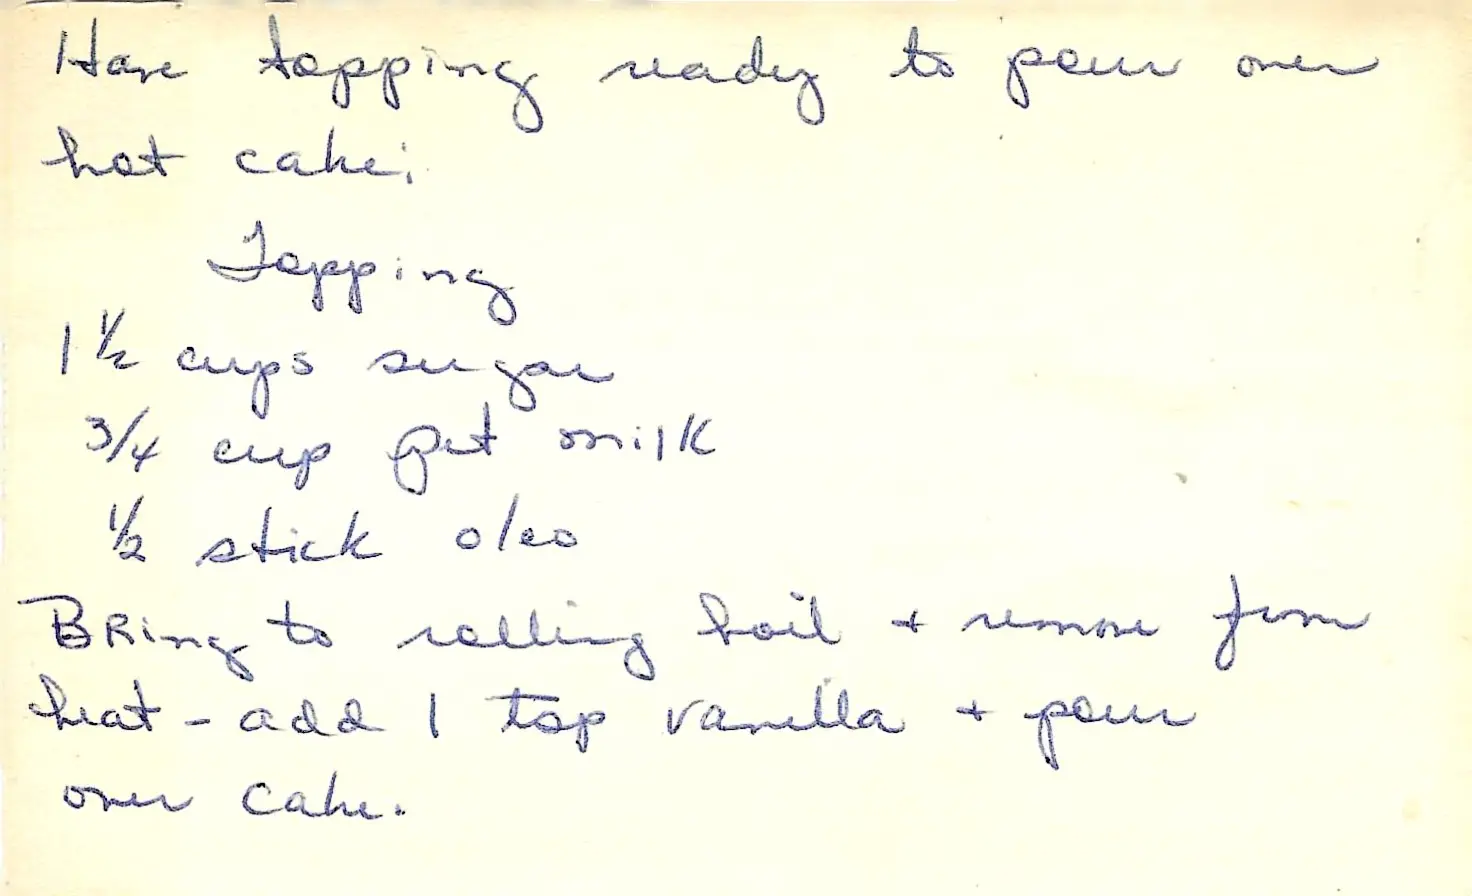 Have topping ready to pour over
hot cake:
Topping
1 1/2 cups sugar
3/4 cup pet milk
1/2 stick oleo
BRing to rolling boil + remove from
heat - add 1 tsp vanilla + pour
over cake.